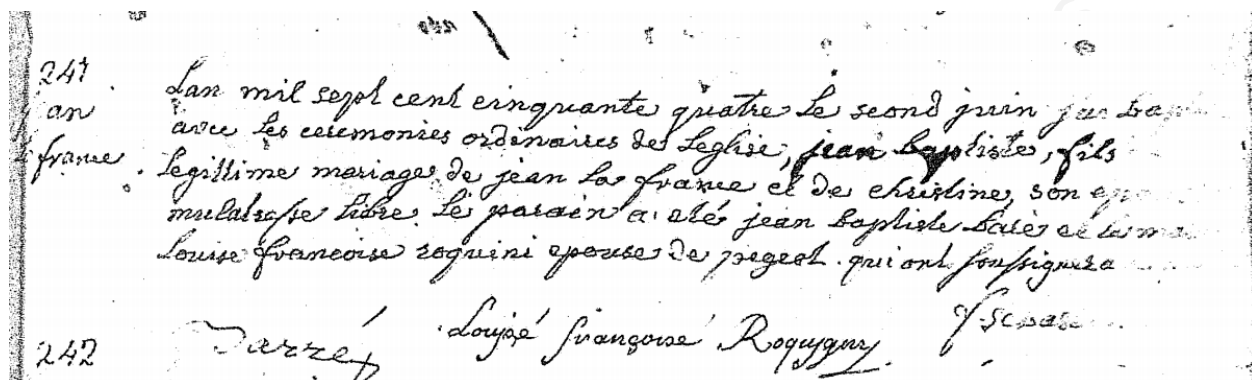 247
an
france
Lan mil sept cent cinquante quatre le second juin jai bap
avec les ceremonies ordinaires de Leglise, jean baptiste, fils
legittime mariage de jean la france et de christine, son epou
mulatresse libre le parain a eté jean baptiste et la ma
Louise francoise roquini epouse de pegeot qui ont soussignez
Louise françoise Roquigny
242